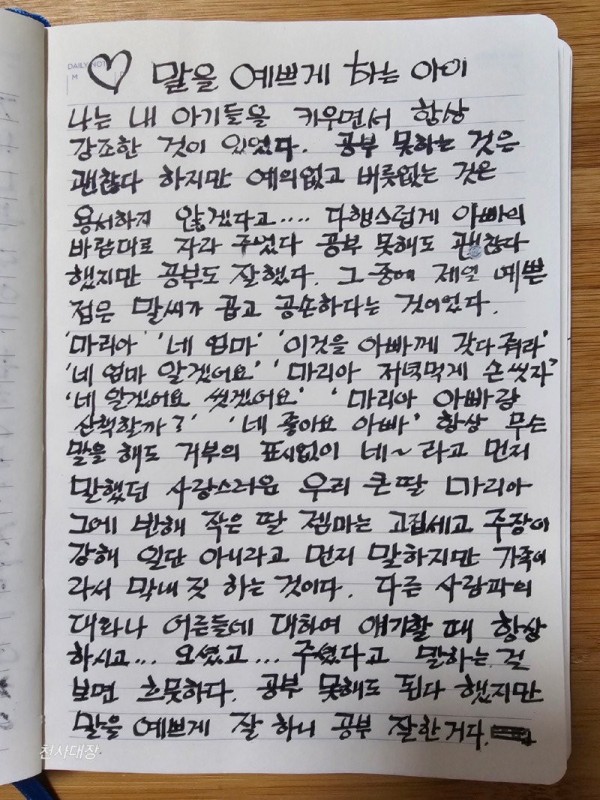 DAILY NOTE
M
♡ 말을 예쁘게 하는 아이
나는 내 아기들을 키우면서 항상
강조한 것이 있었다. 공부 못하는 것은
괜찮다 하지만 예의없고 버릇없는 것은
용서하지 않겠다고.... 다행스럽게 아빠의
바람대로 자라 주었다 공부 못해도 괜찮다
했지만 공부도 잘했다. 그 중에 제일 예쁜
점은 말씨가 곱고 공손하다는 것이었다.
'마리아' '네 엄마' '이것을 아빠께 갖다 줘라'
'네 엄마 알겠어요' '마리아 저녁먹게 손 씻자'
'네 알겠어요 씻겠어요' '마리아 아빠랑
산책할까?' '네 좋아요 아빠' 항상 무슨
말을 해도 거부의 표시없이 네~ 라고 먼저
말했던 사랑스러운 우리 큰 딸 마리아
그에 반해 작은 딸 젬마는 고집세고 주장이
강해 일단 아니라고 먼저 말하지만 가족이
라서 막내 짓 하는 것이다. 다른 사람과의
대화나 어른들에 대하여 얘기할 때 항상
하시고... 오셨고... 주셨다고 말하는 걸
보면 흐뭇하다. 공부 못해도 된다 했지만
말을 예쁘게 잘 하니 공부 잘한거다.
천시대정